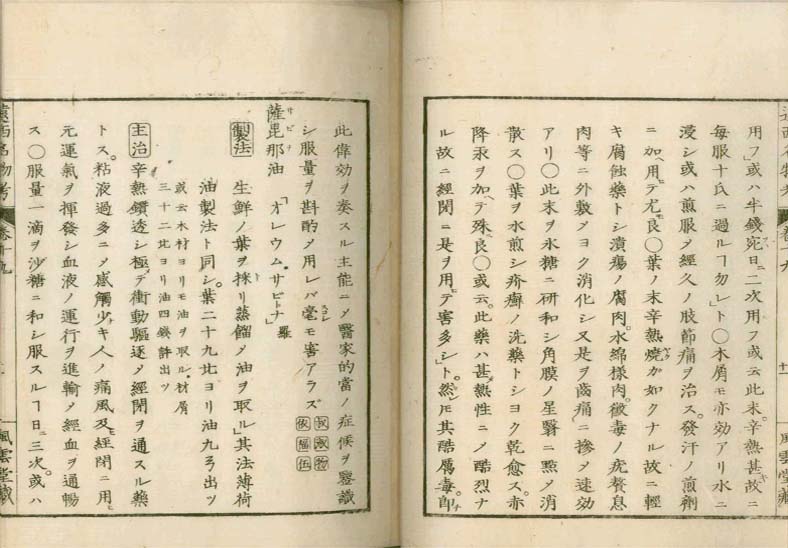 用フ」或ハ半錢宛日ニ二次用フ或云此末。辛熱甚故ニ
毎服十氏ニ過ルヿ勿レ」ト〇木屑モ亦効アリ水ニ
浸シ或ハ煎服メ經久ノ肢節痛ヲ治ス。發汗ノ煎劑
ニ加ヘ用テ尤良〇葉ノ末辛熱燒ガ如クナル故ニ輕
キ腐蝕藥トシ潰瘍ノ腐肉。水綿樣肉。黴毒ノ疣贅息
肉等ニ外敷メヨク消化シ又是ヲ齒痛ニ摻メ速効
アリ〇此末ヲ氷糖ニ研和シ角膜ノ星翳ニ㸃メ消
散ス〇葉ヲ水煎シ疥癬ノ洗藥トシヨク乾愈ス。赤
降汞ヲ加テ殊ニ良〇或云。此藥ハ甚熱性ニメ酷烈ナ
ル故ニ經閉ニ是ヲ用テ害多シ」ト。然ㇾ𪜈其酷厲毒。即
此偉効ヲ奏スル主能ニメ醫家的當ノ症候ヲ鑒識
シ服量ヲ斟酌メ用レバ毫モ害アラズ
薩毘那油 「オレウム・サビナ」羅
サビナ
製法 生鮮ノ葉ヲ採リ蒸餾メ油ヲ取ル」其法薄荷
油製法ト同シ。葉二十九比ヨリ油九ヲ出ツ
或云木材ヨリモ油ヲ取ル・材屑
三十二比ヨリ油四錢許出ツ
主治 辛熱鑽透シ極テ衝動驅逐メ經閉ヲ通スル藥
トス。粘液過多ニメ感觸少キ人ノ痛風及經閉ニ用テ
元運氣ヲ揮發シ血液ノ運行ヲ進輸メ經血ヲ通暢
ス〇服量一滴ヲ沙糖ニ和シ服スルヿ日ニ三次。或ハ
遠西名物考
卷十九
風雲堂藏